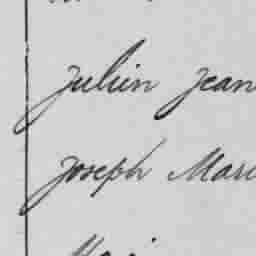 Julien Jean
Joseph Mari